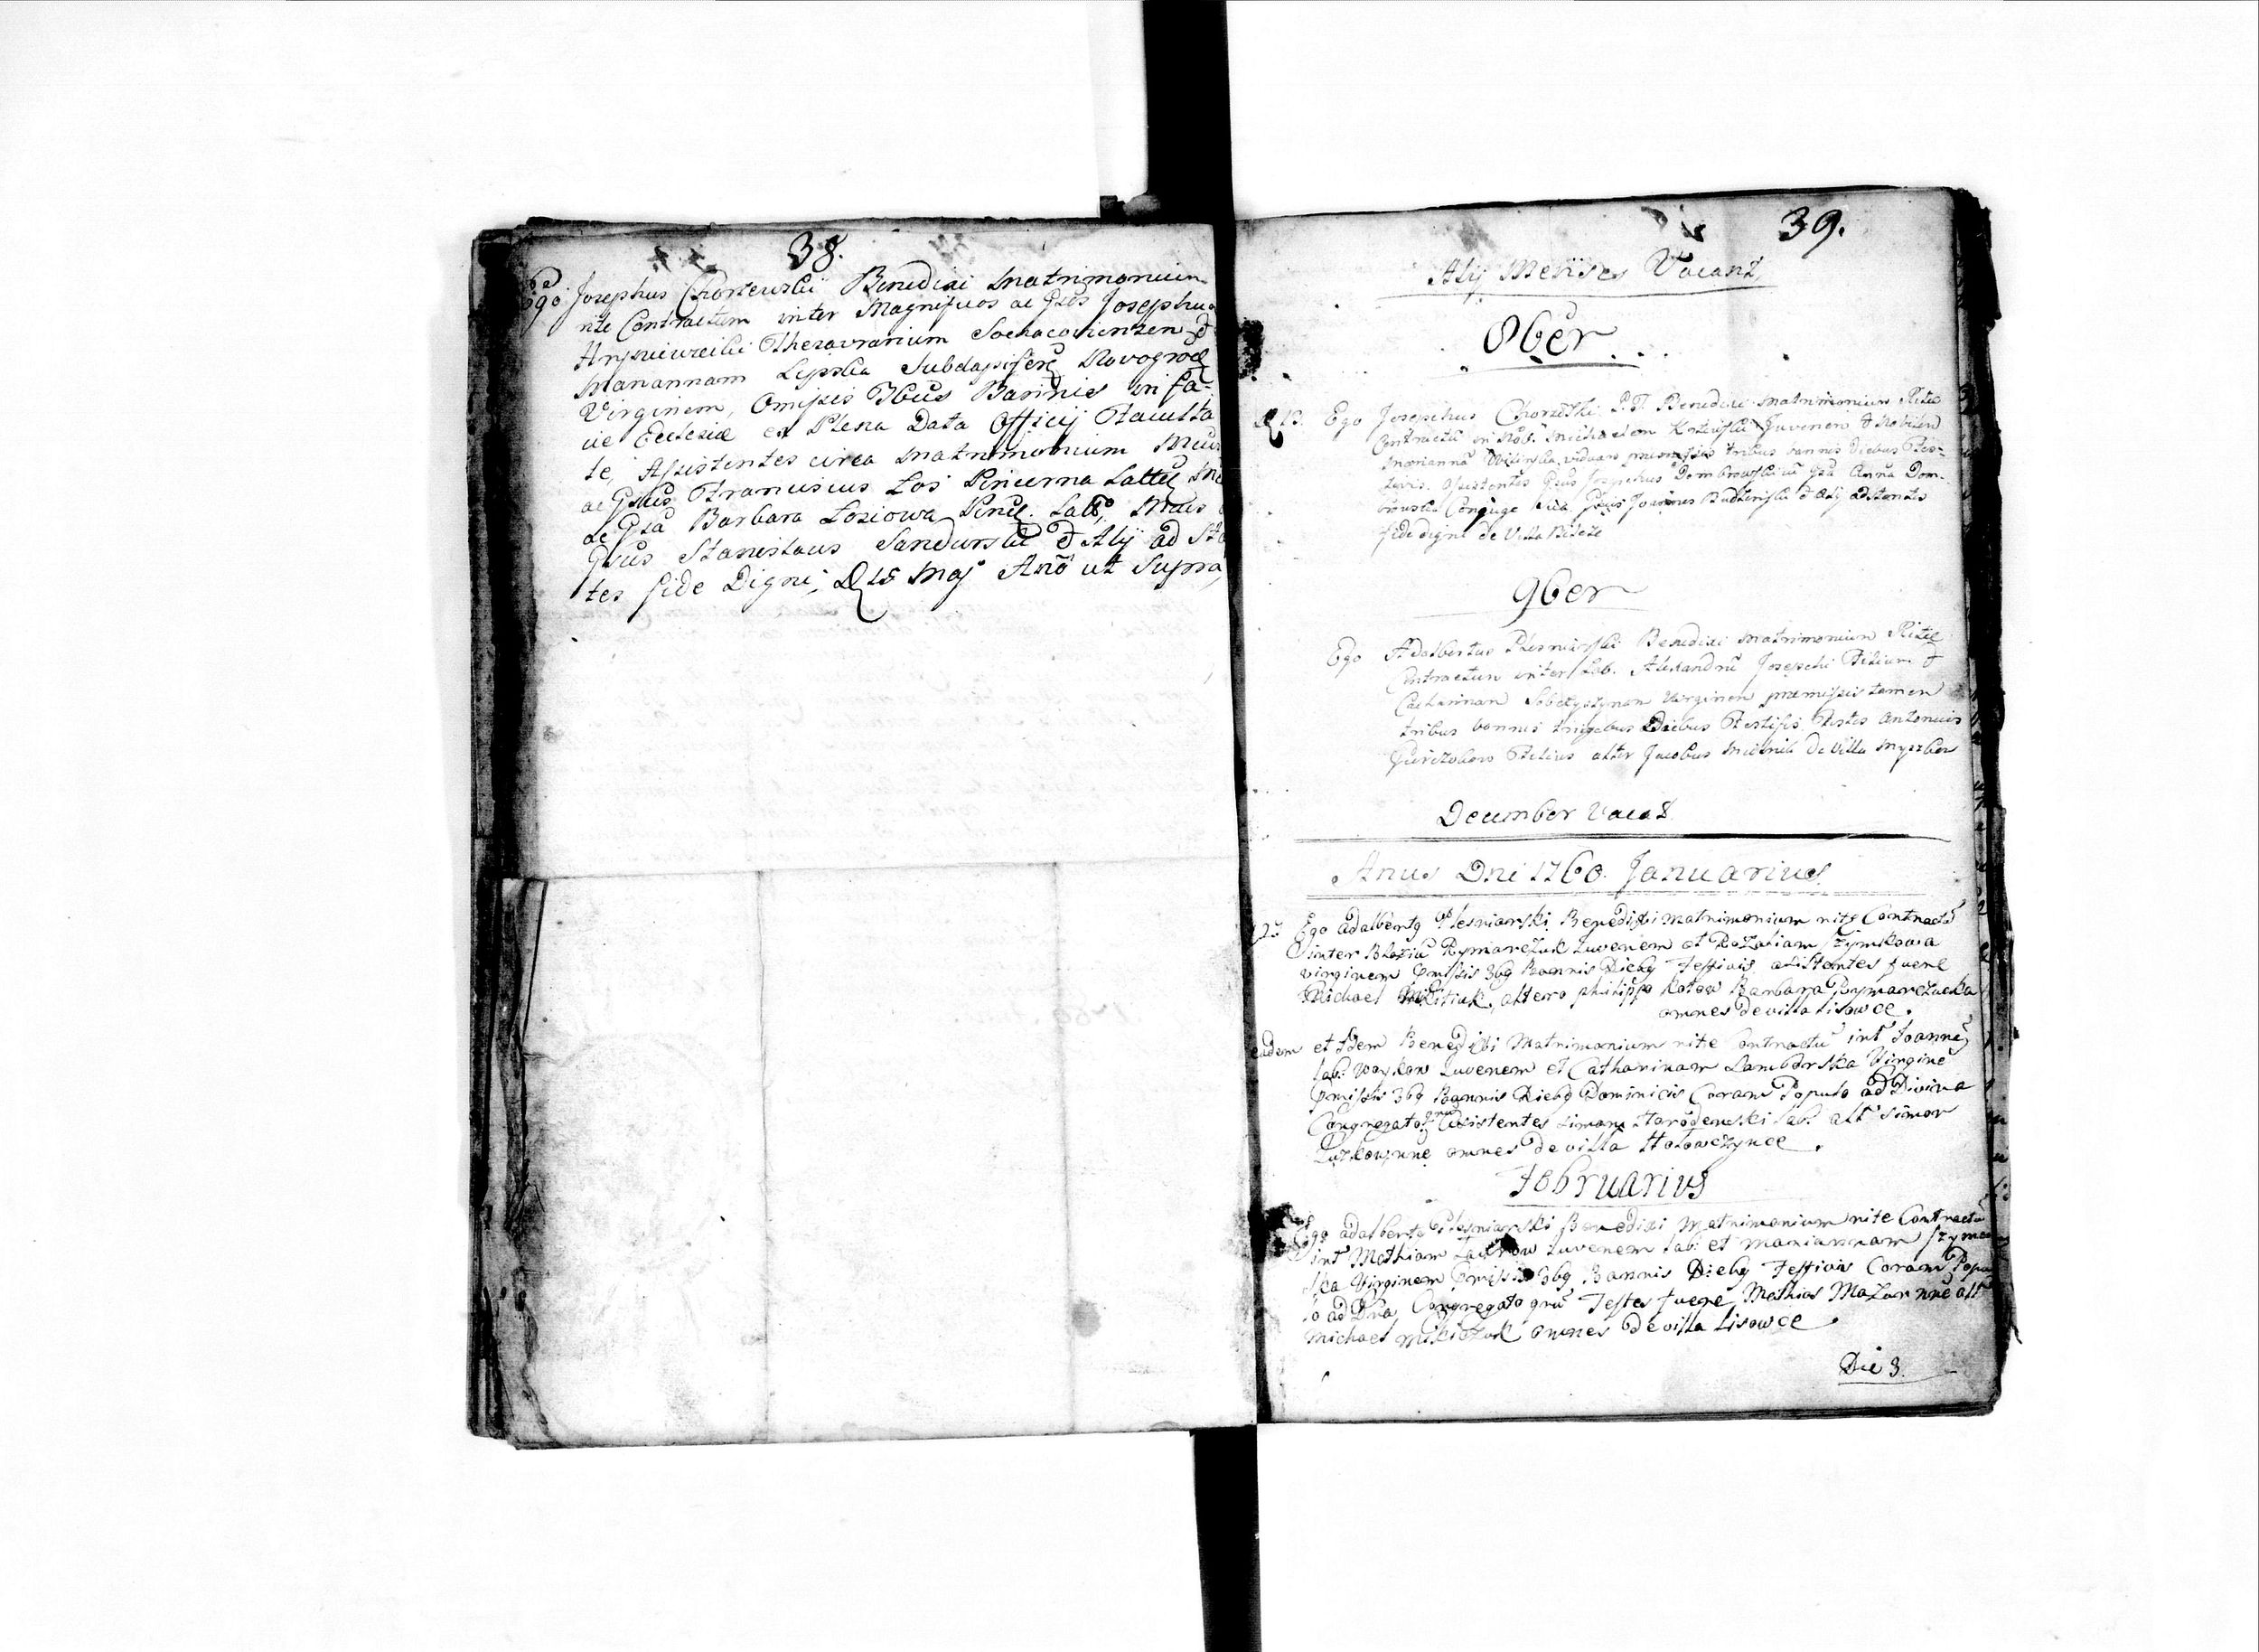 38.
Ego Josephus Chorzewski Benedixi Matrimonium
rite Contractum inter Magnificos ac Gsos Josephum
Thesaurarium Sochacoviensem et
Mariannam Lipska Subdapiferę Novogrod
Virginem, Omissis 3bus Bannis in fa-
cie Ecclesiæ ex Plena Data Officij Faculta
te, Assistentes circa Matrimonium
ac Gsus Franciscus Łos Pincerna
ac Gsa Barbara Łosiowa Pinc.
Gsus Stanislaus Sandurski et Alij ad Sta
tes fide Digni, D 18 Maj Añō ut Supra,
39.
Alij Menses Vacant
8ber
D 13. Ego Josephus Chorzeski P.P. Benedixi Matrimonium Rite
Contractū in Nob. Michaelem Juvenem et Nobilem
Mariannā viduam præmissis tribus bannis diebus Fes-
tivis. Assistentes Gsus Josephus Dombrowski Gsa Anna Dom-
browska Conjuge Gsus Joannes et Alij adstantes
fide digni de Villa
9ber
Ego Adalbertus Plesniarski Benedixi Matrimonium Rite
Contractum inter Lab. Alexandrū Josephi Filium et
Catharinam Virginem præmissis tamen
tribus bannis Diebus Festivis Testes Antonius
Filius alter Jacobus de Villa
December Vacat
Anus Dni 1760. Januarius
Ego Adalbertg Plesniarski Benedixi Matrimonium rite Contractū
inter Blasiū Rymarczuk Iuvenem et Rozaliam Szymkowa
virginem pmissis 3bg Bannis Diebg Festivis asistentes fuere
Michael altero philippo Kotow Barbara Rymarczucka
omnes de villa Lisowce.
eadem et Idem Benedixi Matrimonium rite Contractū int Joannē
lab. Iuvenem et Catharinam Lamborska Virginē
pmissis 3bg Bannis Diebg Dominicis Coram Populo ad Divina
Congregato Asistentes Simon Horodenski lab. altr Simon
omnes de villa Hołowczynce.
Februarius
Ego adalbertg Plesniarski Benedixi Matrimonium rite Contractū
int Mathiam Iuvenem lab. et mariannam
ska Virginem pmissis 3bg Bannis Diebg Festivis Coram Popu
lo ad Dna Congregato Testes fuere Mathias Mazur altr
Michael Mikiczuk omnes de villa Lisowce.
Die 3.